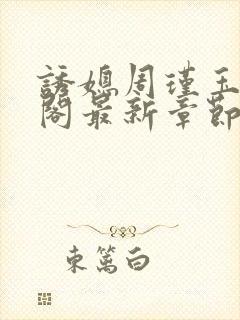 誘媳周瑾玉
閣最新章節
東篱白